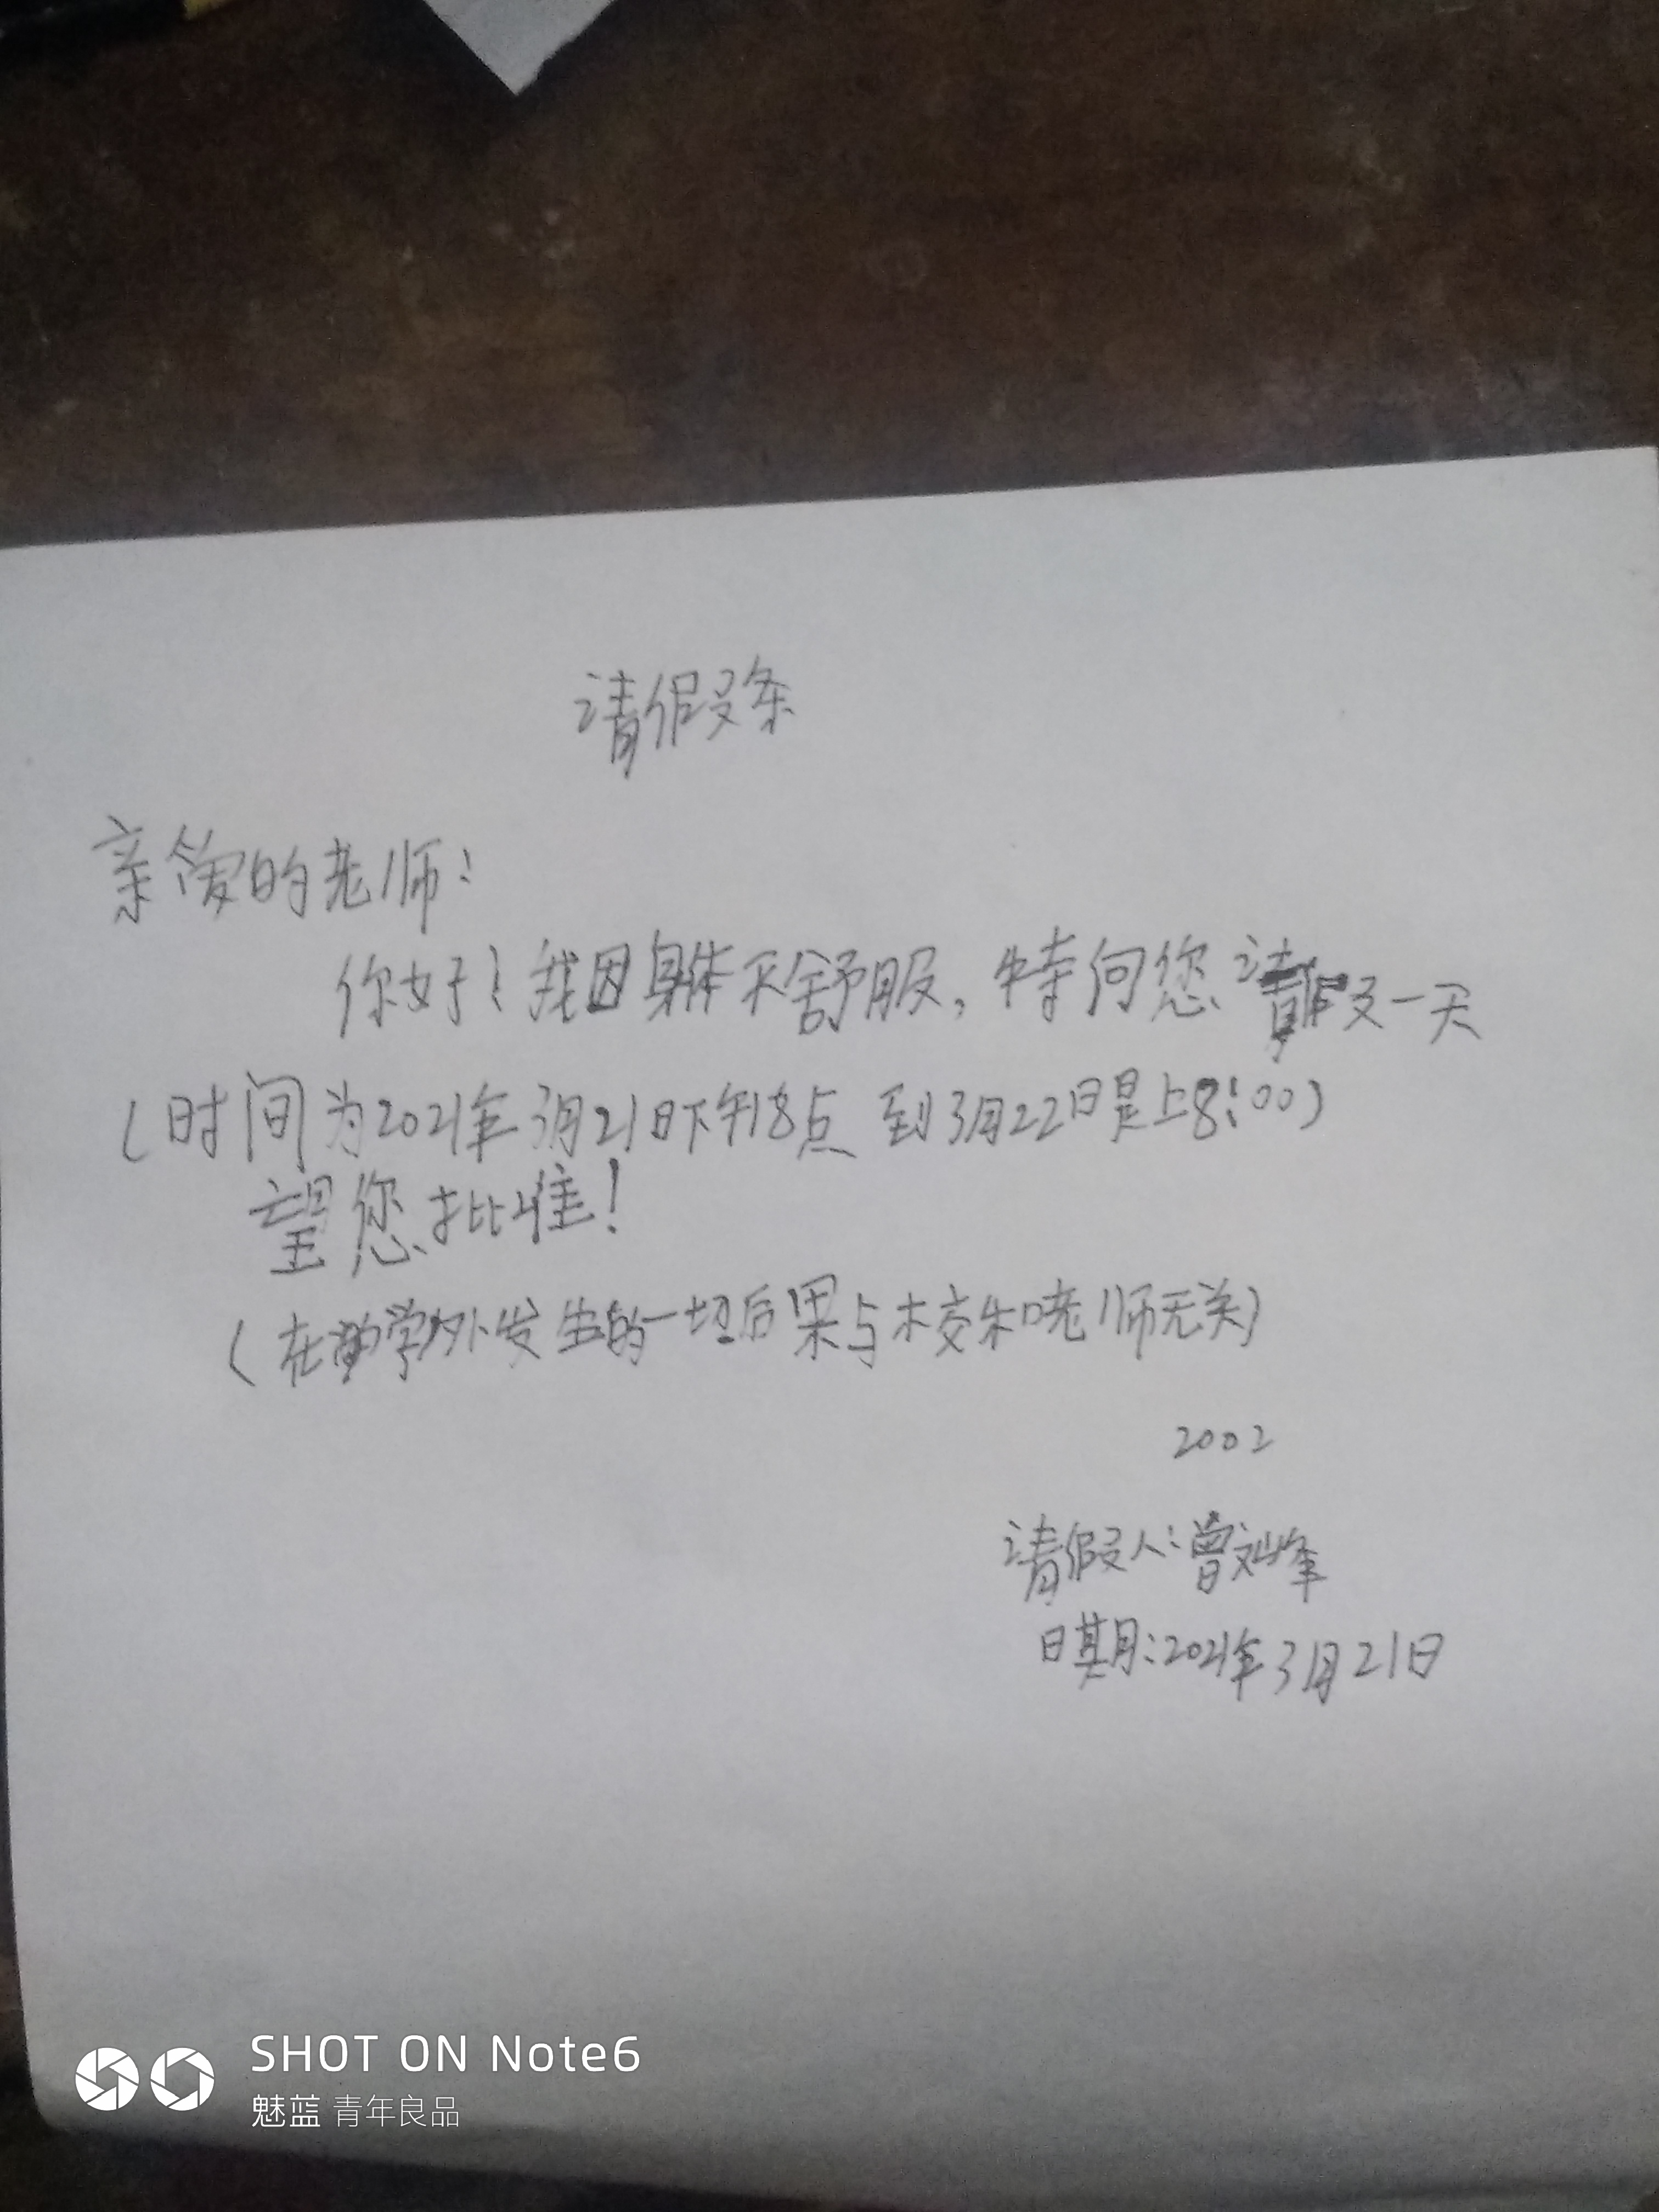 请假条
亲爱的老师:
你好!我因身体不舒服,特向您请假一天
(时间为2021年3月21日下午18点 到3月22日晚上8:00)
望您批准!
(在学外发生的一切后果与木交和老师无关)
2002
请假人:曾文峰
日期:2021年3月21日
SHOT ON Note6
魅蓝 青年良品